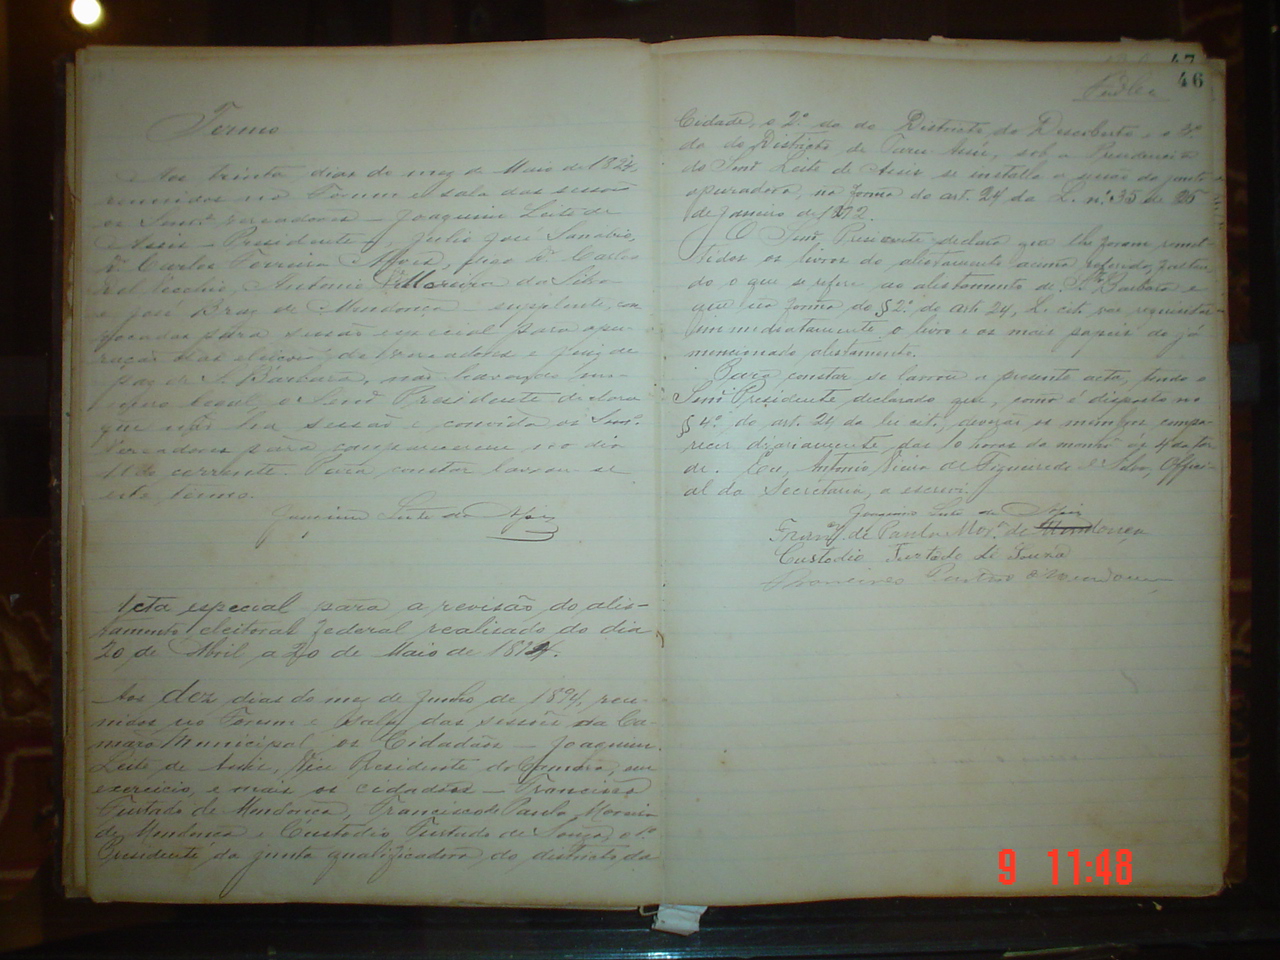 Termo
Aos trinta dias do mez de Maio de 1894,
reunidos no Forum e sala das sessões
os Senrs. vereadores – Joaquim Leite de
Assis – Presidente –, Julio José Sanabio,
Dr. Carlos Ferreira Alves, Dr. Carlos
Antonio Moreira da Silva
e José Braz de Mendonça – suplente, con
vocados para sessão especial para apu
ração das eleições de vereadores e Juiz de
paz de S. Barbara, não havendo nu-
mero legal, o Senr. Presidente declara
que não ha sessão e convida os Senrs.
Vereadores para comparecerem no dia
10 do corrente. Para constar lavrou-se
este termo.
Joaquim Leite de Assis
Acta especial para a revisão do alis-
tamento eleitoral federal realisado do dia
20 de Abril a 20 de Maio de 1894.
Aos dez dias do mez de Junho de 1894, reu-
nidos no Forum e sala das sessões da Ca-
mara Municipal os Cidadãos – Joaquim
Leite de Assis, Vice Presidente da Camara, em
exercicio, e mais os cidadãos – Francisco
Furtado de Mendonça, Francisco de Paula Moreira
de Mendonça e Custodio Furtado de Souza, o 1º
Presidente da junta qualificadora do districto da
47
46
Cidade, o 2º da do Districto do Descoberto e o 3º
da do Districto de Taru-Assú, sob a Presidencia
do Senr. Leite de Assis se installa a sessão da junta
apuradora, na forma do art. 24 da L. n. 35 de 26
de Janeiro de 1892.
O Senr. Presidente declara que lhe foram remet-
tidos os livros do alistamento acima referido, faltan
do o que se refere ao alistamento de Sta. Barbara e
que na forma do § 2º do art. 24, L. cit. vae requisitar
immediatamente o livro e os mais papeis do já
mencionado alistamento.
Para constar se lavrou a presente acta, tendo o
Senr. Presidente declarado que, como é disposto no
§ 4º do art. 24 da lei cit., devião os membros compa-
recer diariamente das 10 horas da manhã ás 4 da tar
de. Eu, Antonio Vieira de Figueiredo e Silva, Offici-
al da Secretaria, a escrevi.
Joaquim Leite de Assis
Franco. de Paula Mora. de Mendonça
Custodio Furtado de Souza
Francisco Furtado de Mendonça
9 11:48